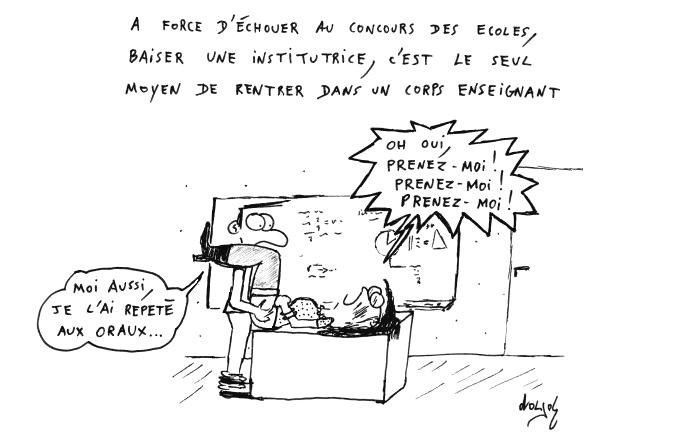 A FORCE D'ÉCHOUER AU CONCOURS DES ECOLES,
BAISER UNE INSTITUTRICE, C'EST LE SEUL
MOYEN DE RENTRER DANS UN CORPS ENSEIGNANT
OH OUI,
PRENEZ-MOI!
PRENEZ-MOI!
PRENEZ-MOI!
MOI AUSSI,
JE L'AI REPETÉ
AUX ORAUX...